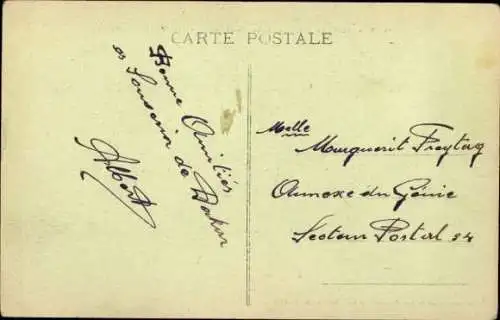 CARTE POSTALE
Bonne Amitiés
as Souvenir de Dakar
Albert
Melle
Marguerit Freytag
Annexe du Génie
Secteur Postal 24